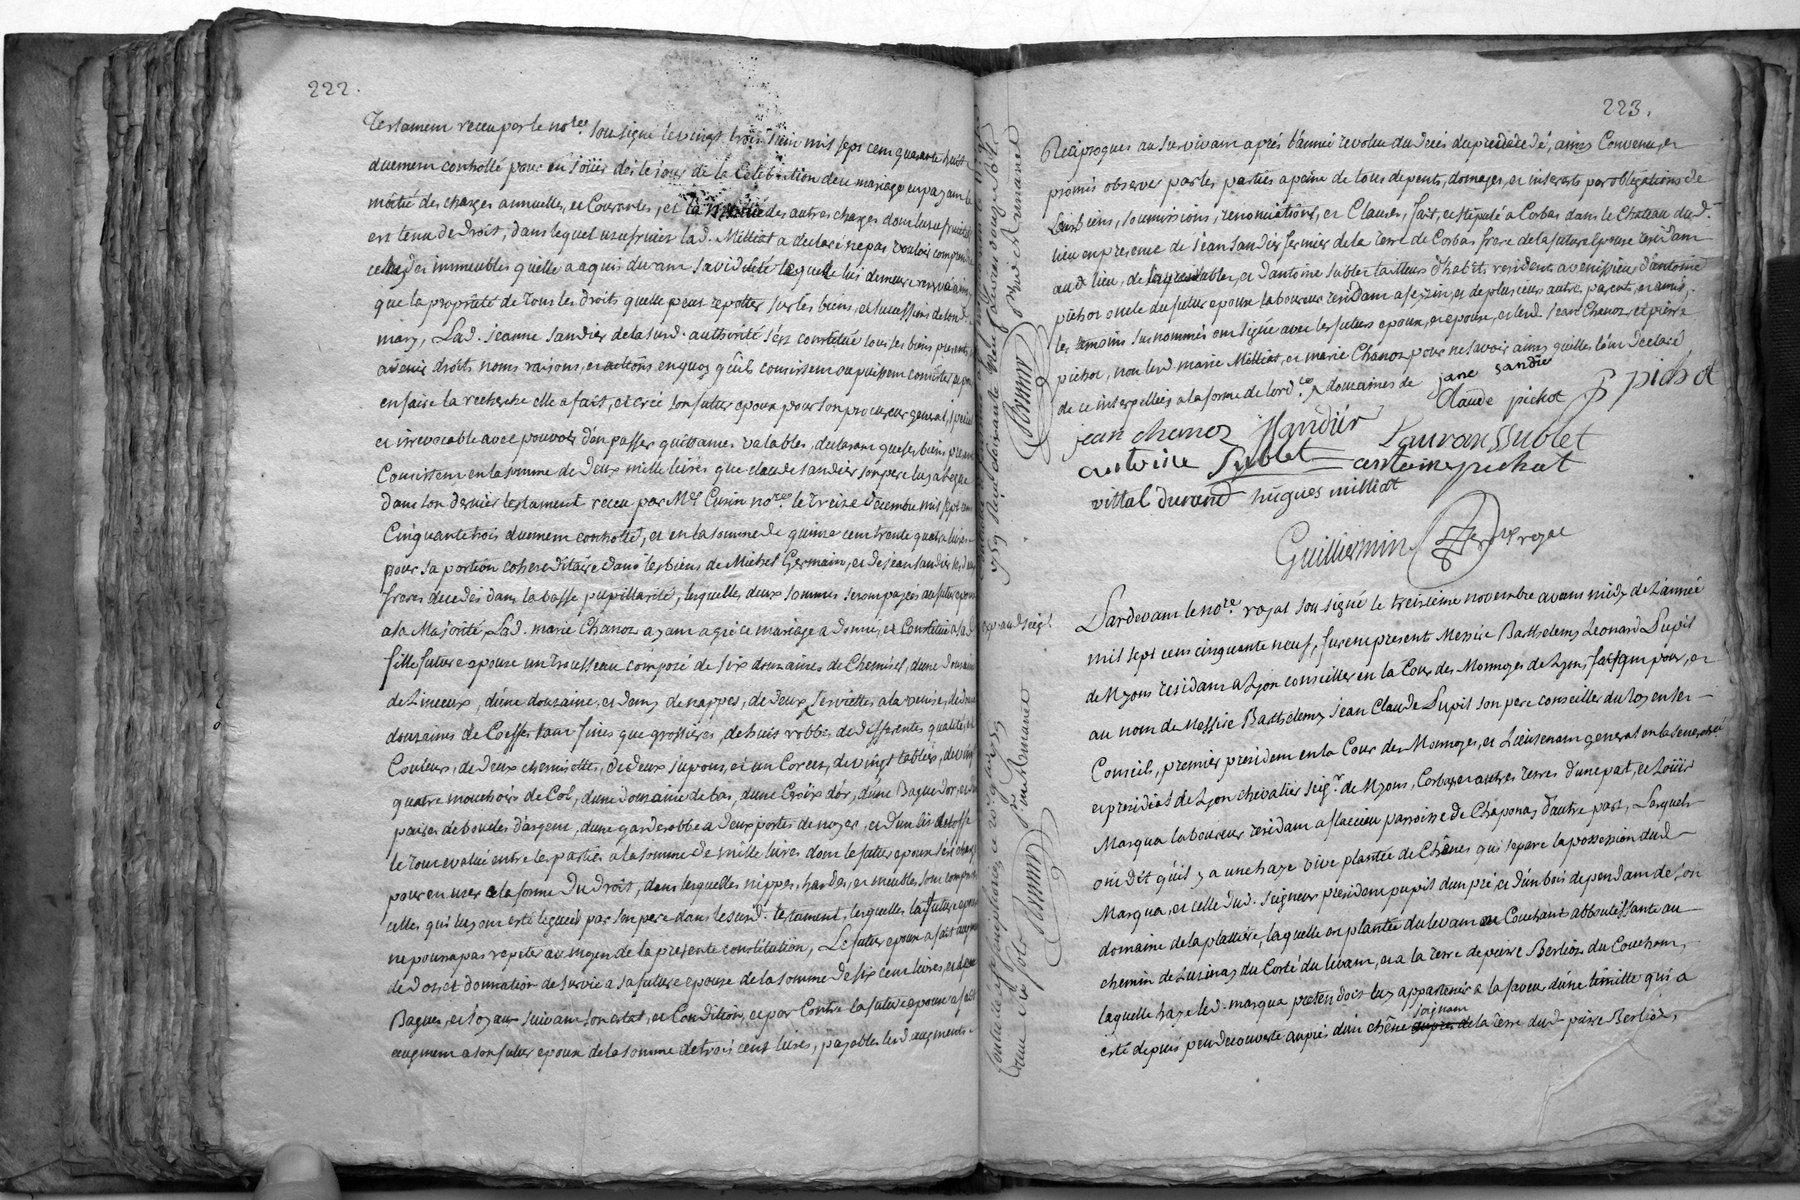 222.
Testament receu par le no.re sousigné le vingt trois juin mil sept cem quarante huit
duement controllé pour en joüir dés le jour de la Célébration de ce mariage en payant la
moitié des charges annuelle, et Courantes, et la moitié des autres charges dont usufruitier
est tenu de droit, dans lequel usufruit lad. Milliat a declaré ne pas vouloir comprendre
ceux des immeubles qu'elle a aquis durant sa viduité laquelle lui demeure reservé ainsi
que la proprieté de tous les droits quelle peut repetter sur les biens, et successions de sond.
mary, Lad. jeanne Sandier de la susd. authorité s'est constitué tous ses biens presents
avenir droits noms raisons, et actions en quoy qu'ils consistent ou puissent consister pour
en faire la recherche elle a fait, et créé son futur epoux pour son procureur general, special
et irrevocable avec pouvoir d'en passer quittances valables, declarant que ses biens presents
Consistent en la somme de deux mille livres que claude sandier son pere luy a legué
dans son dernier testament receu par M.e Cusin no.re le treize décembre mil sept cent
Cinquante trois duement controllé, et en la somme de quinze cent trente quatre livres
pour sa portion cohereditaire dans les biens de Michel Germain, et de jean sandier ses deux
freres decedés dans la basse pupillarité, lesquelles deux sommes seront payées au futur epoux
a sa Majorité, Lad. marie Chanoz ayant agréé ce mariage a donné, et Constitué a sad.
fille future epouse un trousseau composé de six douzaines de Chemises, d'une douzaine
de Linceux, d'une douzaine, et demy de nappes, de deux serviettes a la venise, de deux
douzaines de Coeffes tant fines que grossieres, de huit robbes de differente qualité, et
Couleur, de deux chemisettes, de deux jupons, et un Corcet, de vingt tabliers, de vingt
quatre mouchoirs de Col, d'une douzaine de bas, d'une Croix d'or, d'une Bague d'or, et d'une
paire de boucles d'argent, d'une garderobbe a deux portes de noyer, et d'un lit
le tout evalué entre les parties a la somme de mille livres dont le futur epoux s'est chargé
pour en user a la forme du droit, dans lesquelles nippes, hardes, et meubles sont compris
celles qui luy ont esté leguées par son pere dans le susd. testament, lesquelles la future epouse
ne pourra pas repeter au moyen de la presente constitution, Le futur epoux a fait augment
de dot, et donnation de survie a sa future epouse de la somme de six cent livres, et de
Bagues, et joyaux suivant son estat, et Condition, et par Contre la future epouse a fait
augment a son futur epoux de la somme de trois cent livres, payables lesd augments
223.
Reciproques au survivant aprés l'année revolue du decés du predecedé, ainsi Convenu, et
promis observer par les parties a peine de tous depents, domages, et interests par obligations de
leurs biens, soumissions, renonciations, et Clauses, fait, et stipulé a Corbas dans le Chateau dud.
lieu en presence de jean Sandier fermier de la Terre de Corbas frere de la future Epouse residant
aud. lieu, de laurent sublet, et d'antoine sublet tailleurs d'habits residents a venissieu d'antoine
pichot oncle du futur epoux laboureur residant a feyzin, et de plusieurs autre parents, et amis,
les temoins susnommés ont signé avec les futurs epoux, et epouse, et lesd. jean Chanoz, et pierre
pichot, non lesd. marie Milliat, et marie Chanoz pour ne savoir ainsy quelles l'ont declaré
de ce interpellées a la forme de lord.ce douzaines de
jane sandié
Claude pichot P pichot
jean chanoz JSandier Lauranssublet
antoine sublet antoine pichat
vittal durand hugues milliat
Guilliermin no.re royal
Pardevant le no.re royal sousigné le treizième novembre avant midy de L'année
mil sept cent cinquante neuf, furent present Messire Barthelemy Leonard Pupil
de Myons residant a Lyon conseiller en la Cour des Monnoyes de Lyon, faisant pour, et
au nom de Messire Barthelemy jean Claude Pupil son pere conseiller du Roy en ses
Conseils, premier president en la Cour des Monnoyes, et Lieutenant general en la senechaussée
et presidial de Lyon chevalier seig.r de Myons, Corbas, et autres terres d'une part, et Loüis
Marqua laboureur residant a flaccieu parroisse de Chaponay d'autre part, Lesquels
ont dit qu'il y a une haye vive plantée de Chênes qui separe la possession dud.
Marqua, et celle dud. seigneur president pupil d'un pré, et d'un bois dependant de son
domaine de la plattiere, laquelle est plantée du levant au Couchant abboutissante au
chemin de Luzinay du Corté du levant, et a la terre de peirre Berlioz du Couchant,
laquelle haye led. marqua pretendoit luy appartenir a la faveur d'une limitte qui a
joignant
esté depuis peu decouverte auprés d'un chêne aupres de la terre dud. pierre Berlioz,